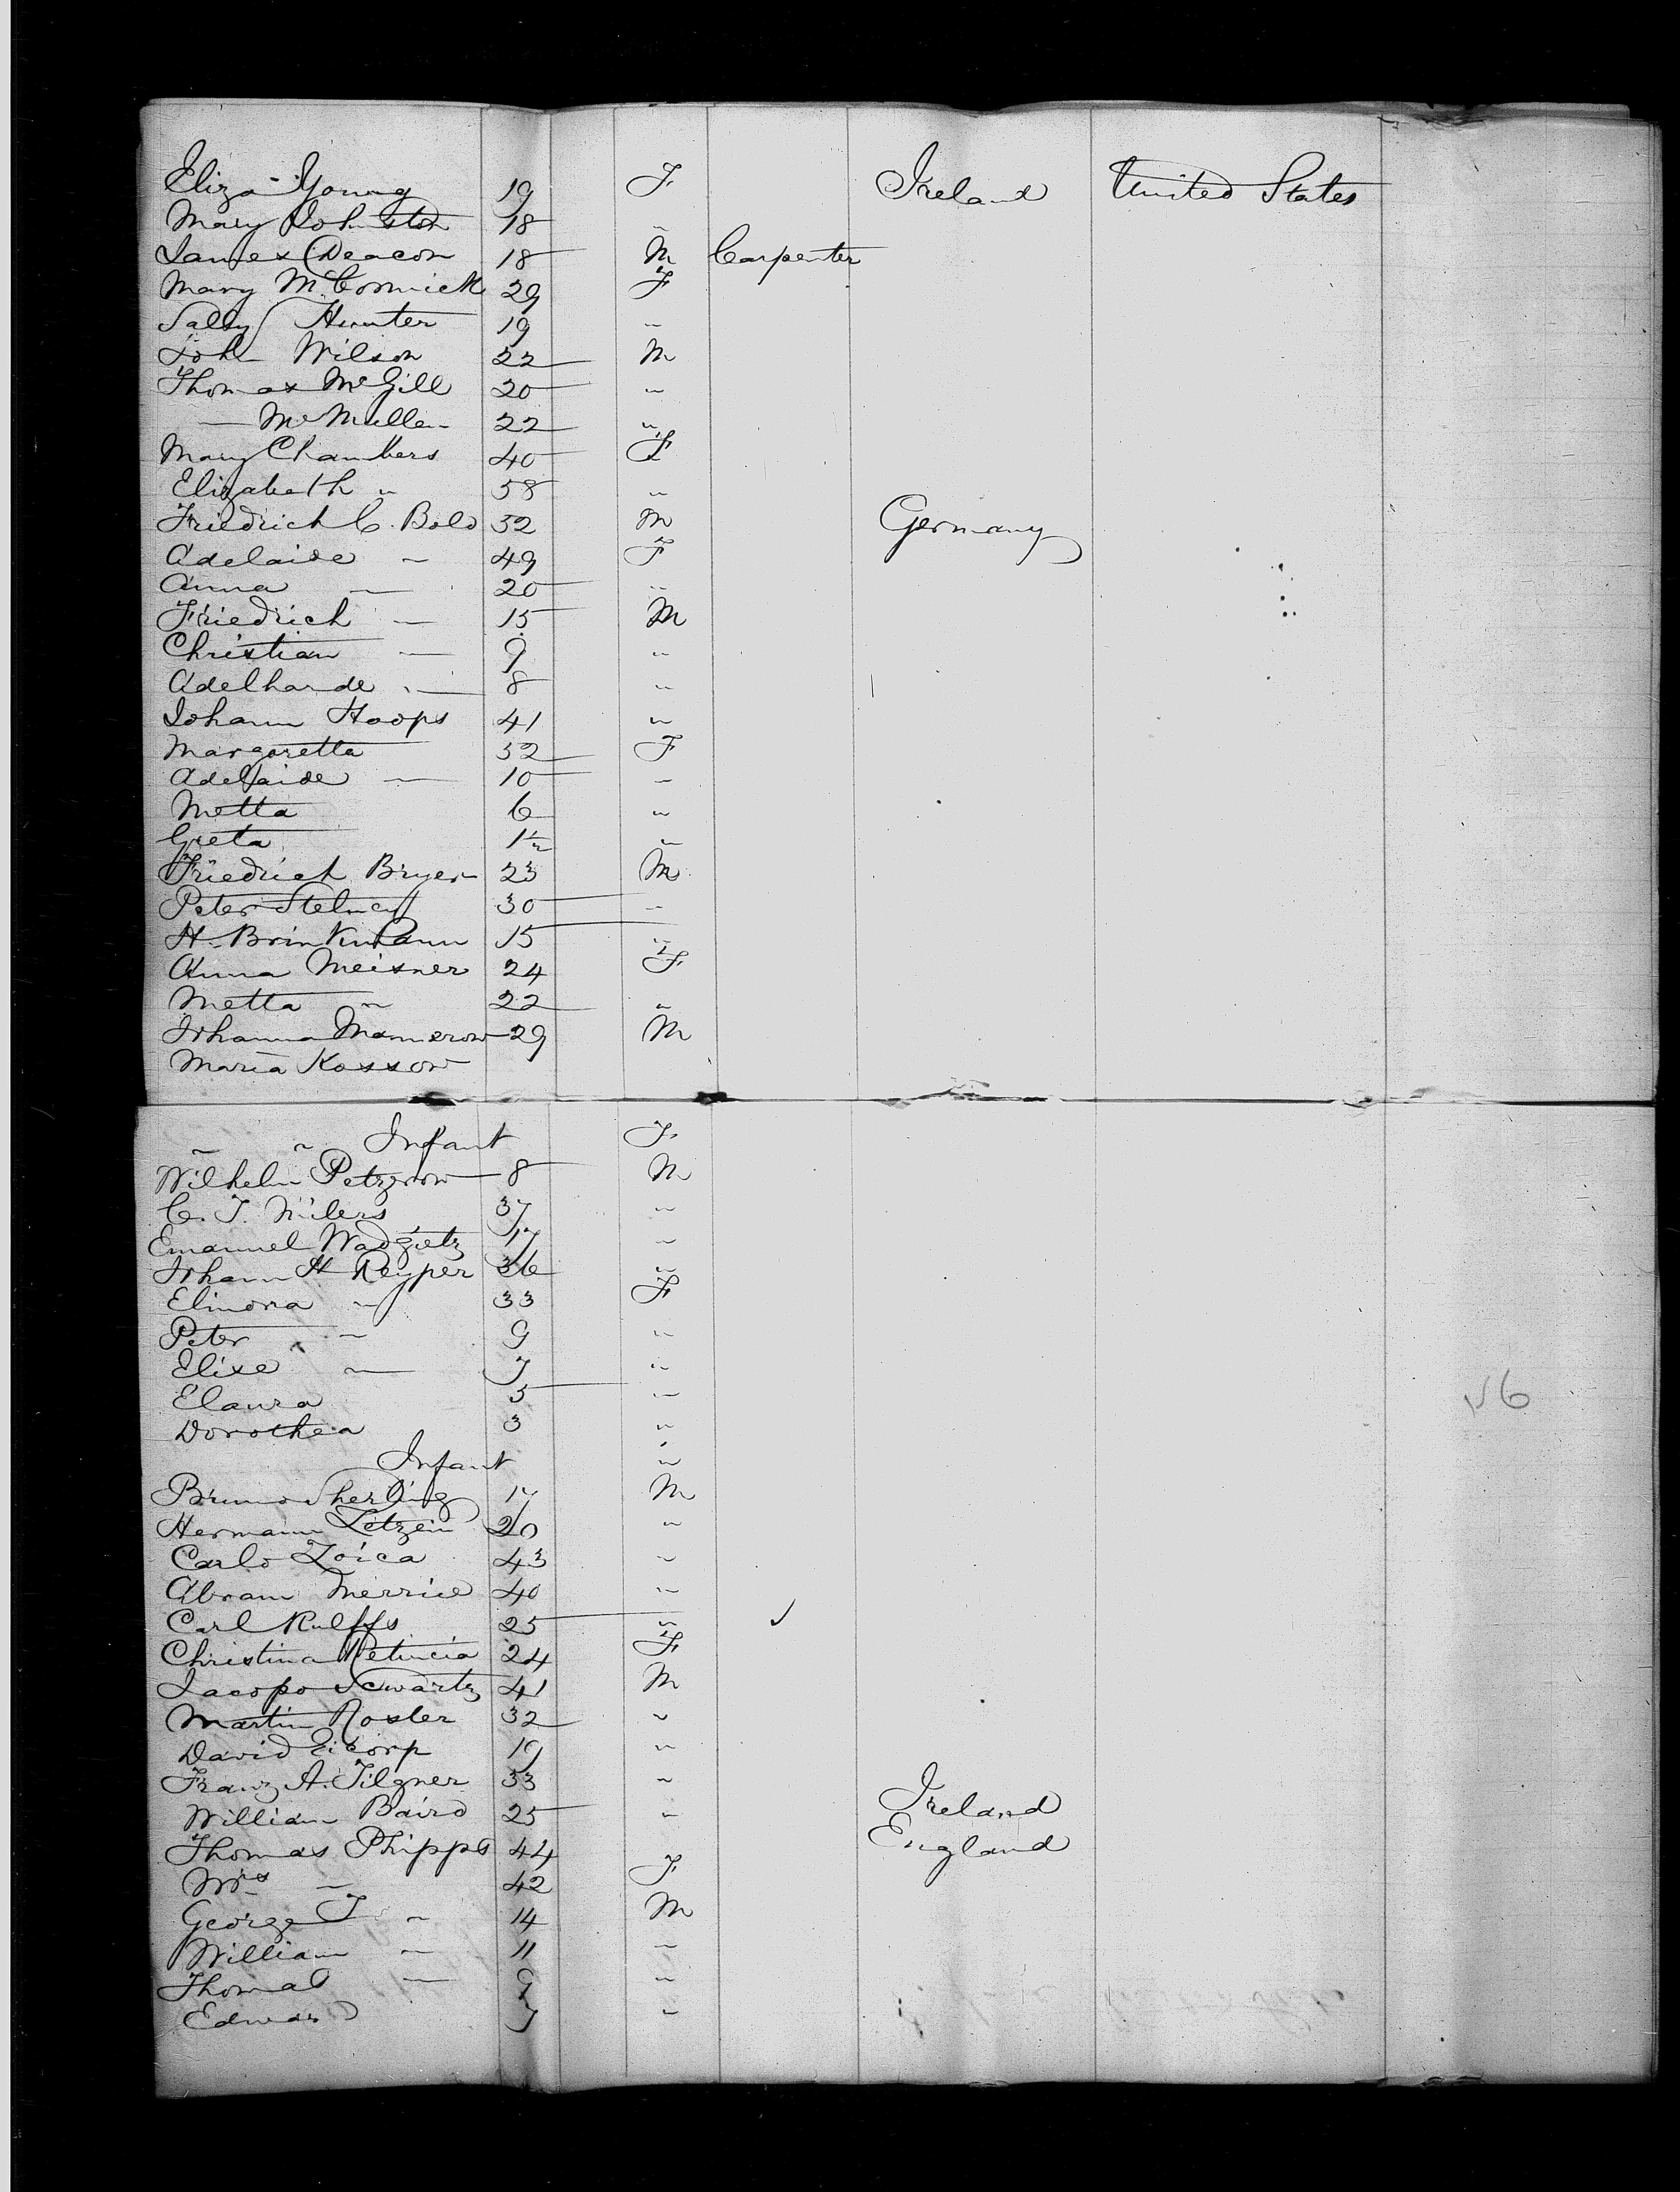 Eliza Young 19 F Ireland United States
Mary Johnston 18 "
James Deacon 18 M Carpenter
Mary McCormick 29 F
Sally Hunter 19 "
Joh Wilson 22 M
Thomas McGill 20 "
— McMullen 22 "
Mary Chambers 40 F
Elizabeth " 58 "
Friedrich C. Bold 52 M Germany
Adelaide " 49 F
Anna — 20 "
Friedrich — 15 M
Christian — 9 "
Adelhaide — 8 "
Johann Hoops 41 "
Margaretta 32 F
Adelaide — 10 "
Metta 6 "
Greta 1½ "
Friedrich Bryer 23 M
Peter 30 "
H. Brinkmann 15 "
Anna Meisner 24 F
Metta " 22 "
Johanna Mannerow 29 M
Maria Kossow
" " Infant F
Wilhelm Petzrow 8 M
C. J. Nilers 37 "
Emanuel Wadgietz 17 "
Johann H Reyper 36 "
Elinora " 33 F
Peter " 9 "
Elise — 7 "
Elaura 5 "
Dorothea 3 "
Infant "
Bruno Sherling 17 M
Hermann Letzein 20 "
Carlo Zoica 43 "
Abram Merrice 40 "
Carl Rulffs 25 "
Christina 24 F
Jacopo Scwartz 41 M
Martin Rosler 32 "
David 19 "
Franz A. Tilgner 33 "
William Baird 25 " Ireland
Thomas Phipps 44 England
Mrs — 42 F
George T " 14 M
William — 11 "
Thomas — 9 "
Edward 7 "